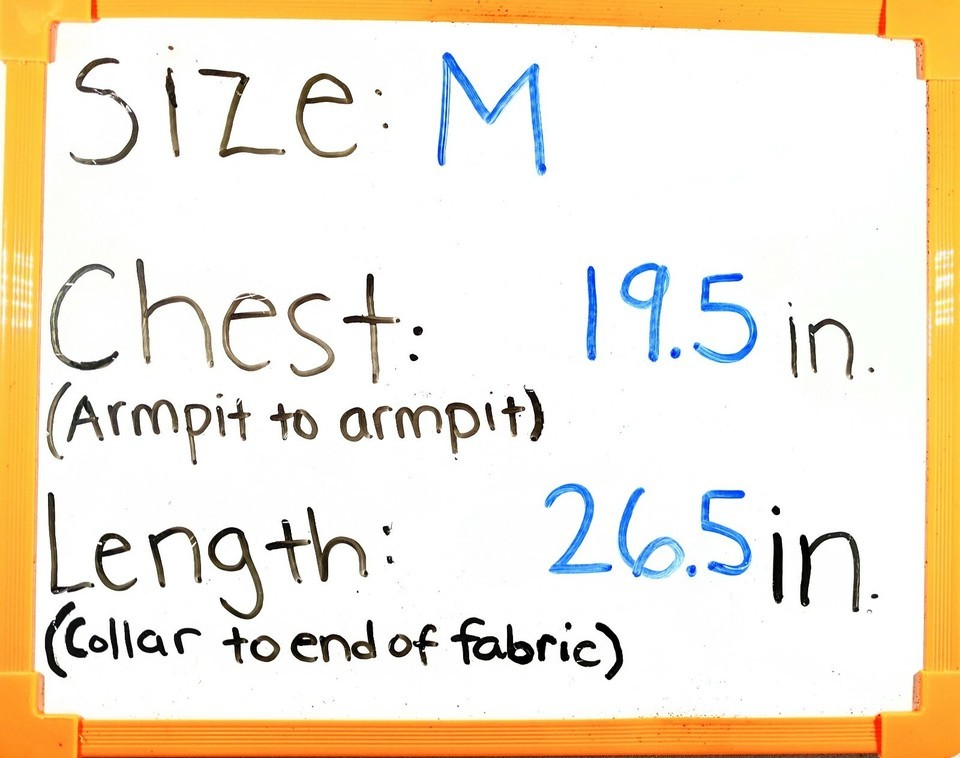 Size: M
Chest: 19.5 in.
(Armpit to armpit)
Length: 26.5 in.
(Collar to end of fabric)